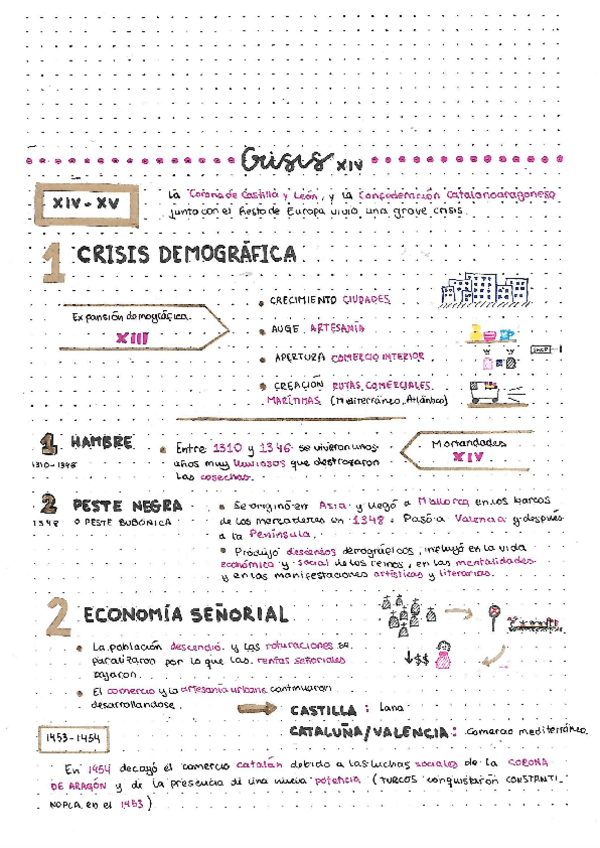 Crisis XIV
XIV - XV
La Corona de Castilla y León, y la Confederación catalanoaragonesa
junto con el Resto de Europa vivió una grave crisis.
1 CRISIS DEMOGRÁFICA
Expansión demográfica
XIII
• CRECIMIENTO CIUDADES
• AUGE ARTESANÍA
• APERTURA COMERCIO INTERIOR
• CREACIÓN RUTAS COMERCIALES
MARÍTIMAS (Mediterráneo, Atlántico)
1 HAMBRE
1310-1346
• Entre 1310 y 1346 se vivieron unos
años muy lluviosos que destrozaron
las cosechas.
Mortandades
XIV
2 PESTE NEGRA
1348 O PESTE BUBÓNICA
• Se originó en Asia y llegó a Mallorca en los barcos
de los mercaderes en 1348. Pasó a Valencia y después
a la Península.
• Produjo descensos demográficos, influyó en la vida
económica y social de los reinos, en las mentalidades
y en las manifestaciones artísticas y literarias.
2 ECONOMÍA SEÑORIAL
• La población descendió y las roturaciones se
paralizaron por lo que las rentas señoriales
bajaron.
↓$$
• El comercio y la artesanía urbana continuaron
desarrollandose.
CASTILLA: lana
CATALUÑA/VALENCIA: comercio mediterráneo.
1453-1454
En 1454 decayó el comercio catalán debido a las luchas sociales de la CORONA
DE ARAGÓN y de la presencia de una nueva potencia (TURCOS conquistaron CONSTANTI_
NOPLA en el 1453)